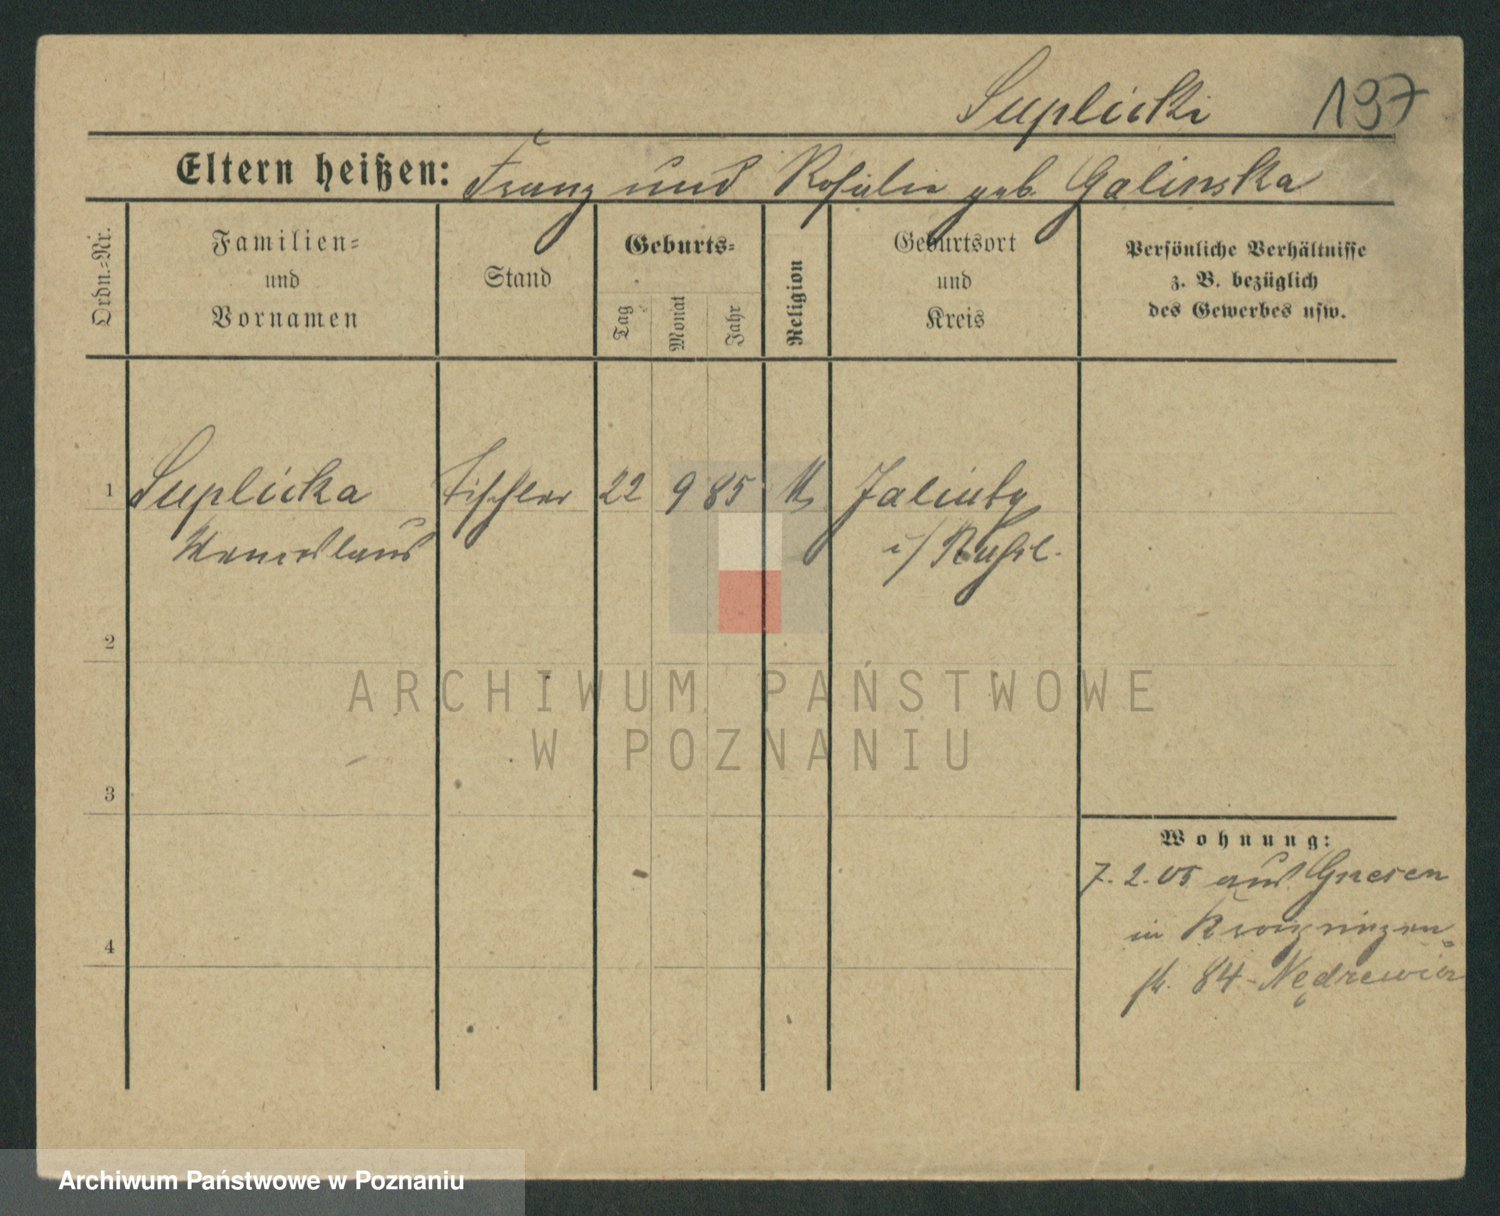 Suplicki 197
Eltern heißen: Franz und Rosalie geb. Galinska
Ordn.-Nr.
Familien-
und
Vornamen
Stand
Geburts-
Tag
Monat
Jahr
Religion
Geburtsort
und
Kreis
Persönliche Verhältnisse
z. B. bezüglich
des Gewerbes usw.
1 Suplicka Tischler 22 9 85 k.
Wenceslaus i/Russl.
2
3
4
Wohnung:
7. 2. 05 aus Gnesen
in Kronprinzen-
str. 84 Nędrewicz
ARCHIWUM PAŃSTWOWE
W POZNANIU
Archiwum Państwowe w Poznaniu